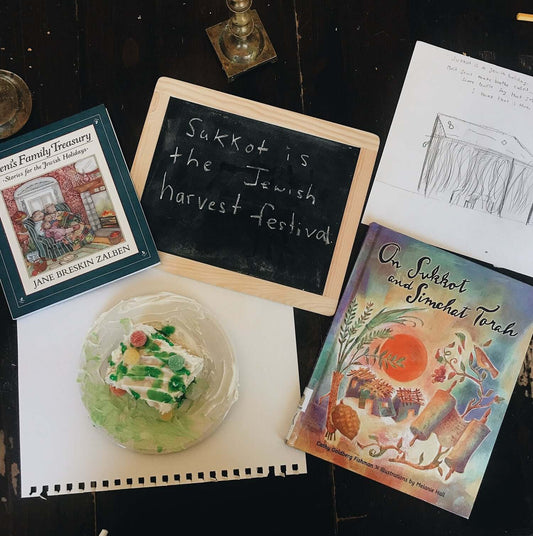 Sukkot is
the Jewish
harvest festival.
en's Family Treasury
Stories for the Jewish Holidays
JANE BRESKIN ZALBEN
On Sukkot
and
Simchat Torah
Cathy Goldberg Fishman Illustrations by Melanie Hall
Sukkot is a Jewish